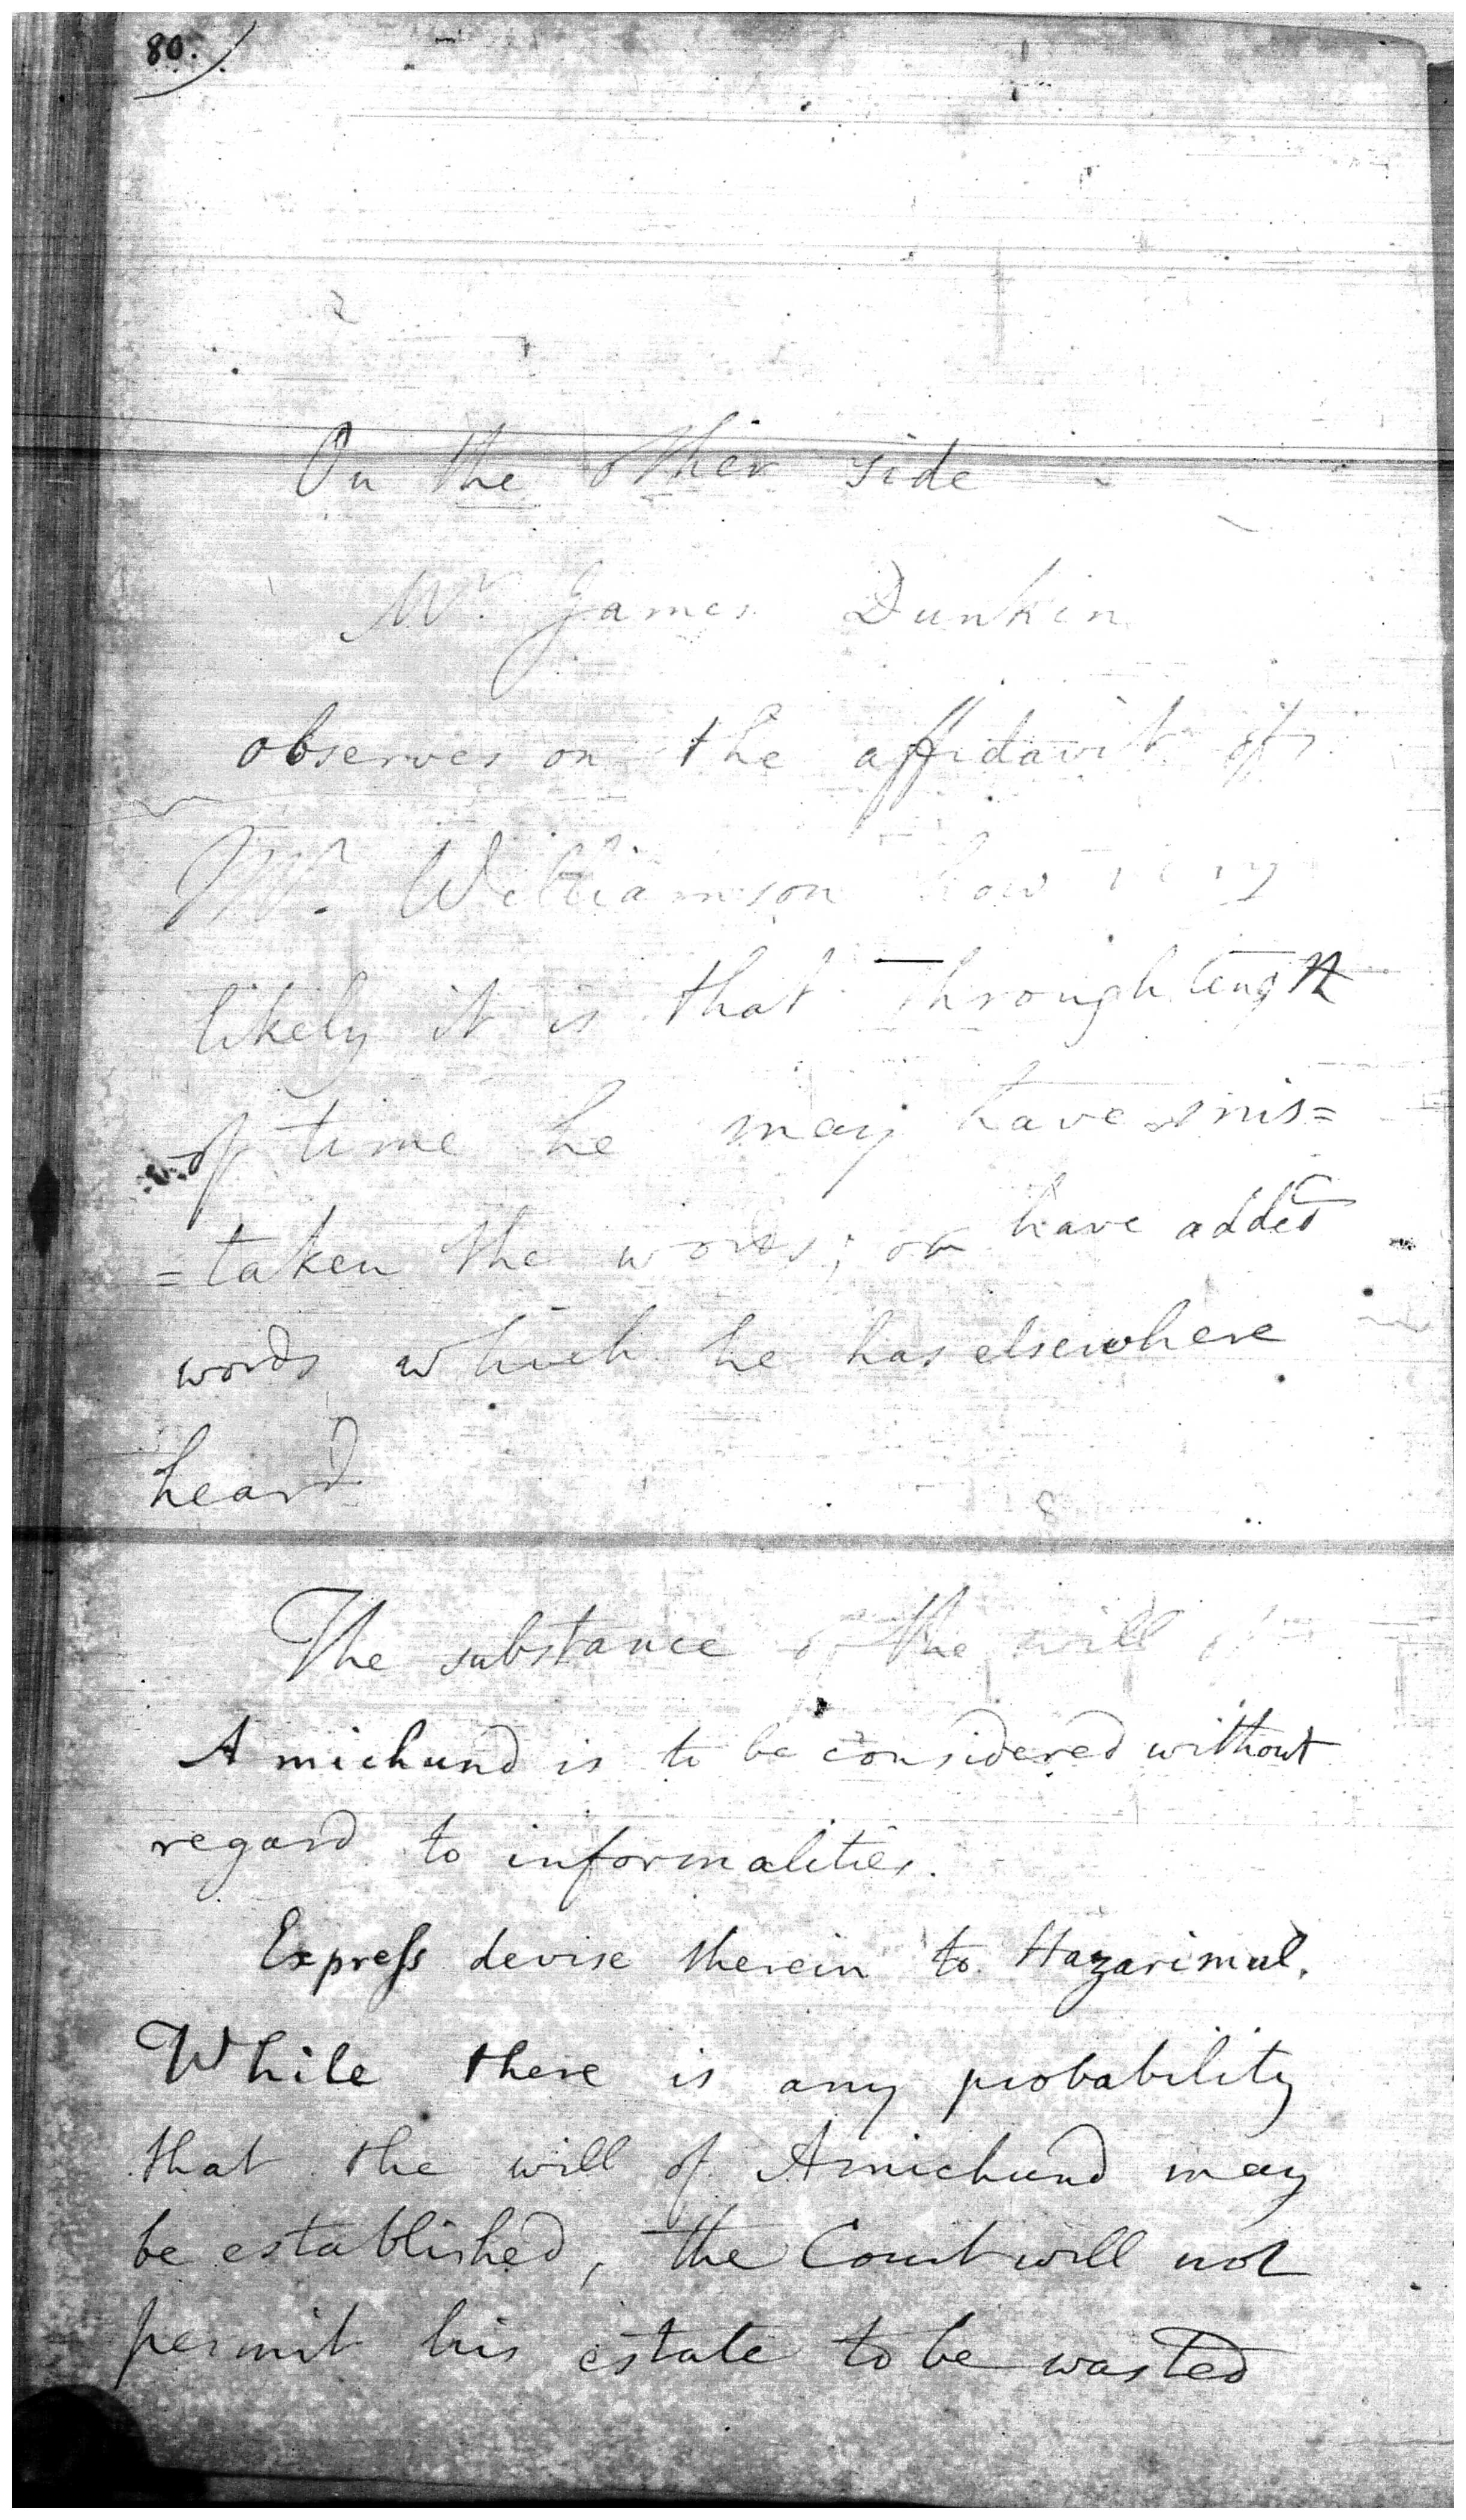 80.
On the other side
Mr. James Dunkin
observes on the affidavit of
Mr. Williamson how very
likely it is that through length
of time he may have mis=
=taken the words; or have added
words which he has elsewhere
heard
The substance of the will of
Amichund is to be considered without
regard to informalities.
Express devise therein to Hazarimul.
While there is any probability
that the will of Amichund may
be established, the Court will not
permit his estate to be wasted